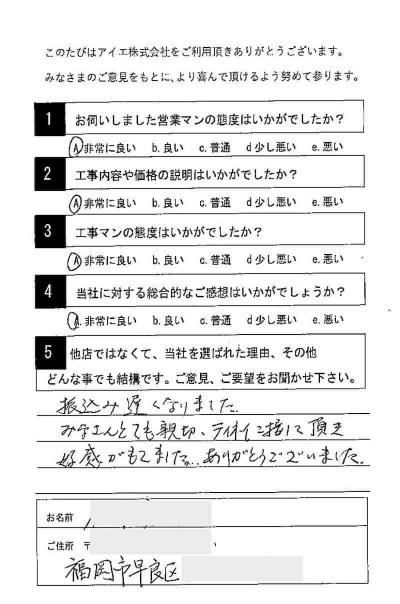 このたびはアイエ株式会社をご利用頂きありがとうございます。
みなさまのご意見をもとに、より喜んで頂けるよう努めて参ります。
1 お伺いしました営業マンの態度はいかがでしたか？
A 非常に良い b. 良い c. 普通 d 少し悪い e. 悪い
2 工事内容や価格の説明はいかがでしたか？
A 非常に良い b. 良い c. 普通 d 少し悪い e. 悪い
3 工事マンの態度はいかがでしたか？
A 非常に良い b. 良い c. 普通 d 少し悪い e. 悪い
4 当社に対する総合的なご感想はいかがでしょうか？
A. 非常に良い b. 良い c. 普通 d 少し悪い e. 悪い
5 他店ではなくて、当社を選ばれた理由、その他
どんな事でも結構です。ご意見、ご要望をお聞かせ下さい。
振込み遅くなりました
みなさんとても親切、テイネイに接して頂き
好感がもてました。ありがとうございました。
お名前
ご住所 〒
福岡市早良区